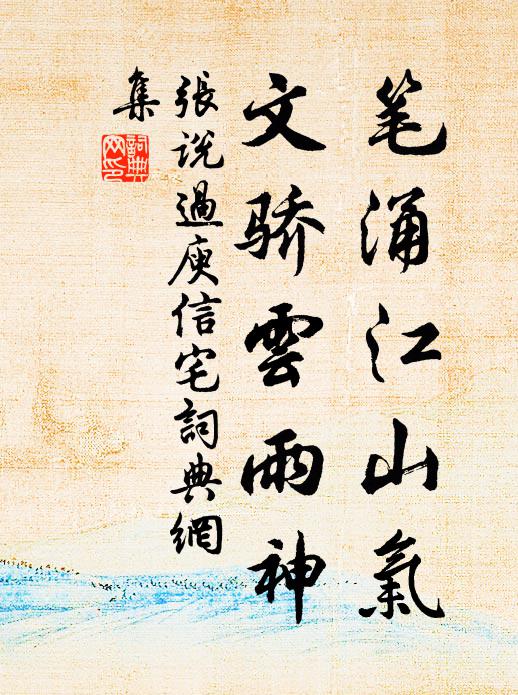 笔涌江山氣
文骄雲雨神
張说過庾信宅詞典網
集
詞典
网印